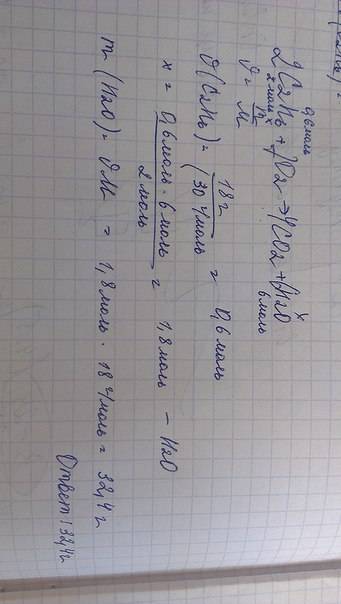 0,6моль x
2C2H6 + 7O2 → 4CO2 + 6H2O
2моль 6моль
ν = m/M
ν(C2H6) = 18г / (30 г/моль = 0,6 моль
x = 0,6 моль · 6 моль / 2 моль = 1,8 моль – H2O
m (H2O) = νM = 1,8 моль · 18 г/моль = 32,4 г
Ответ: 32,4г